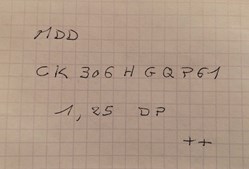 MDD
CK 306 H G Q P61
1,25 DP
++